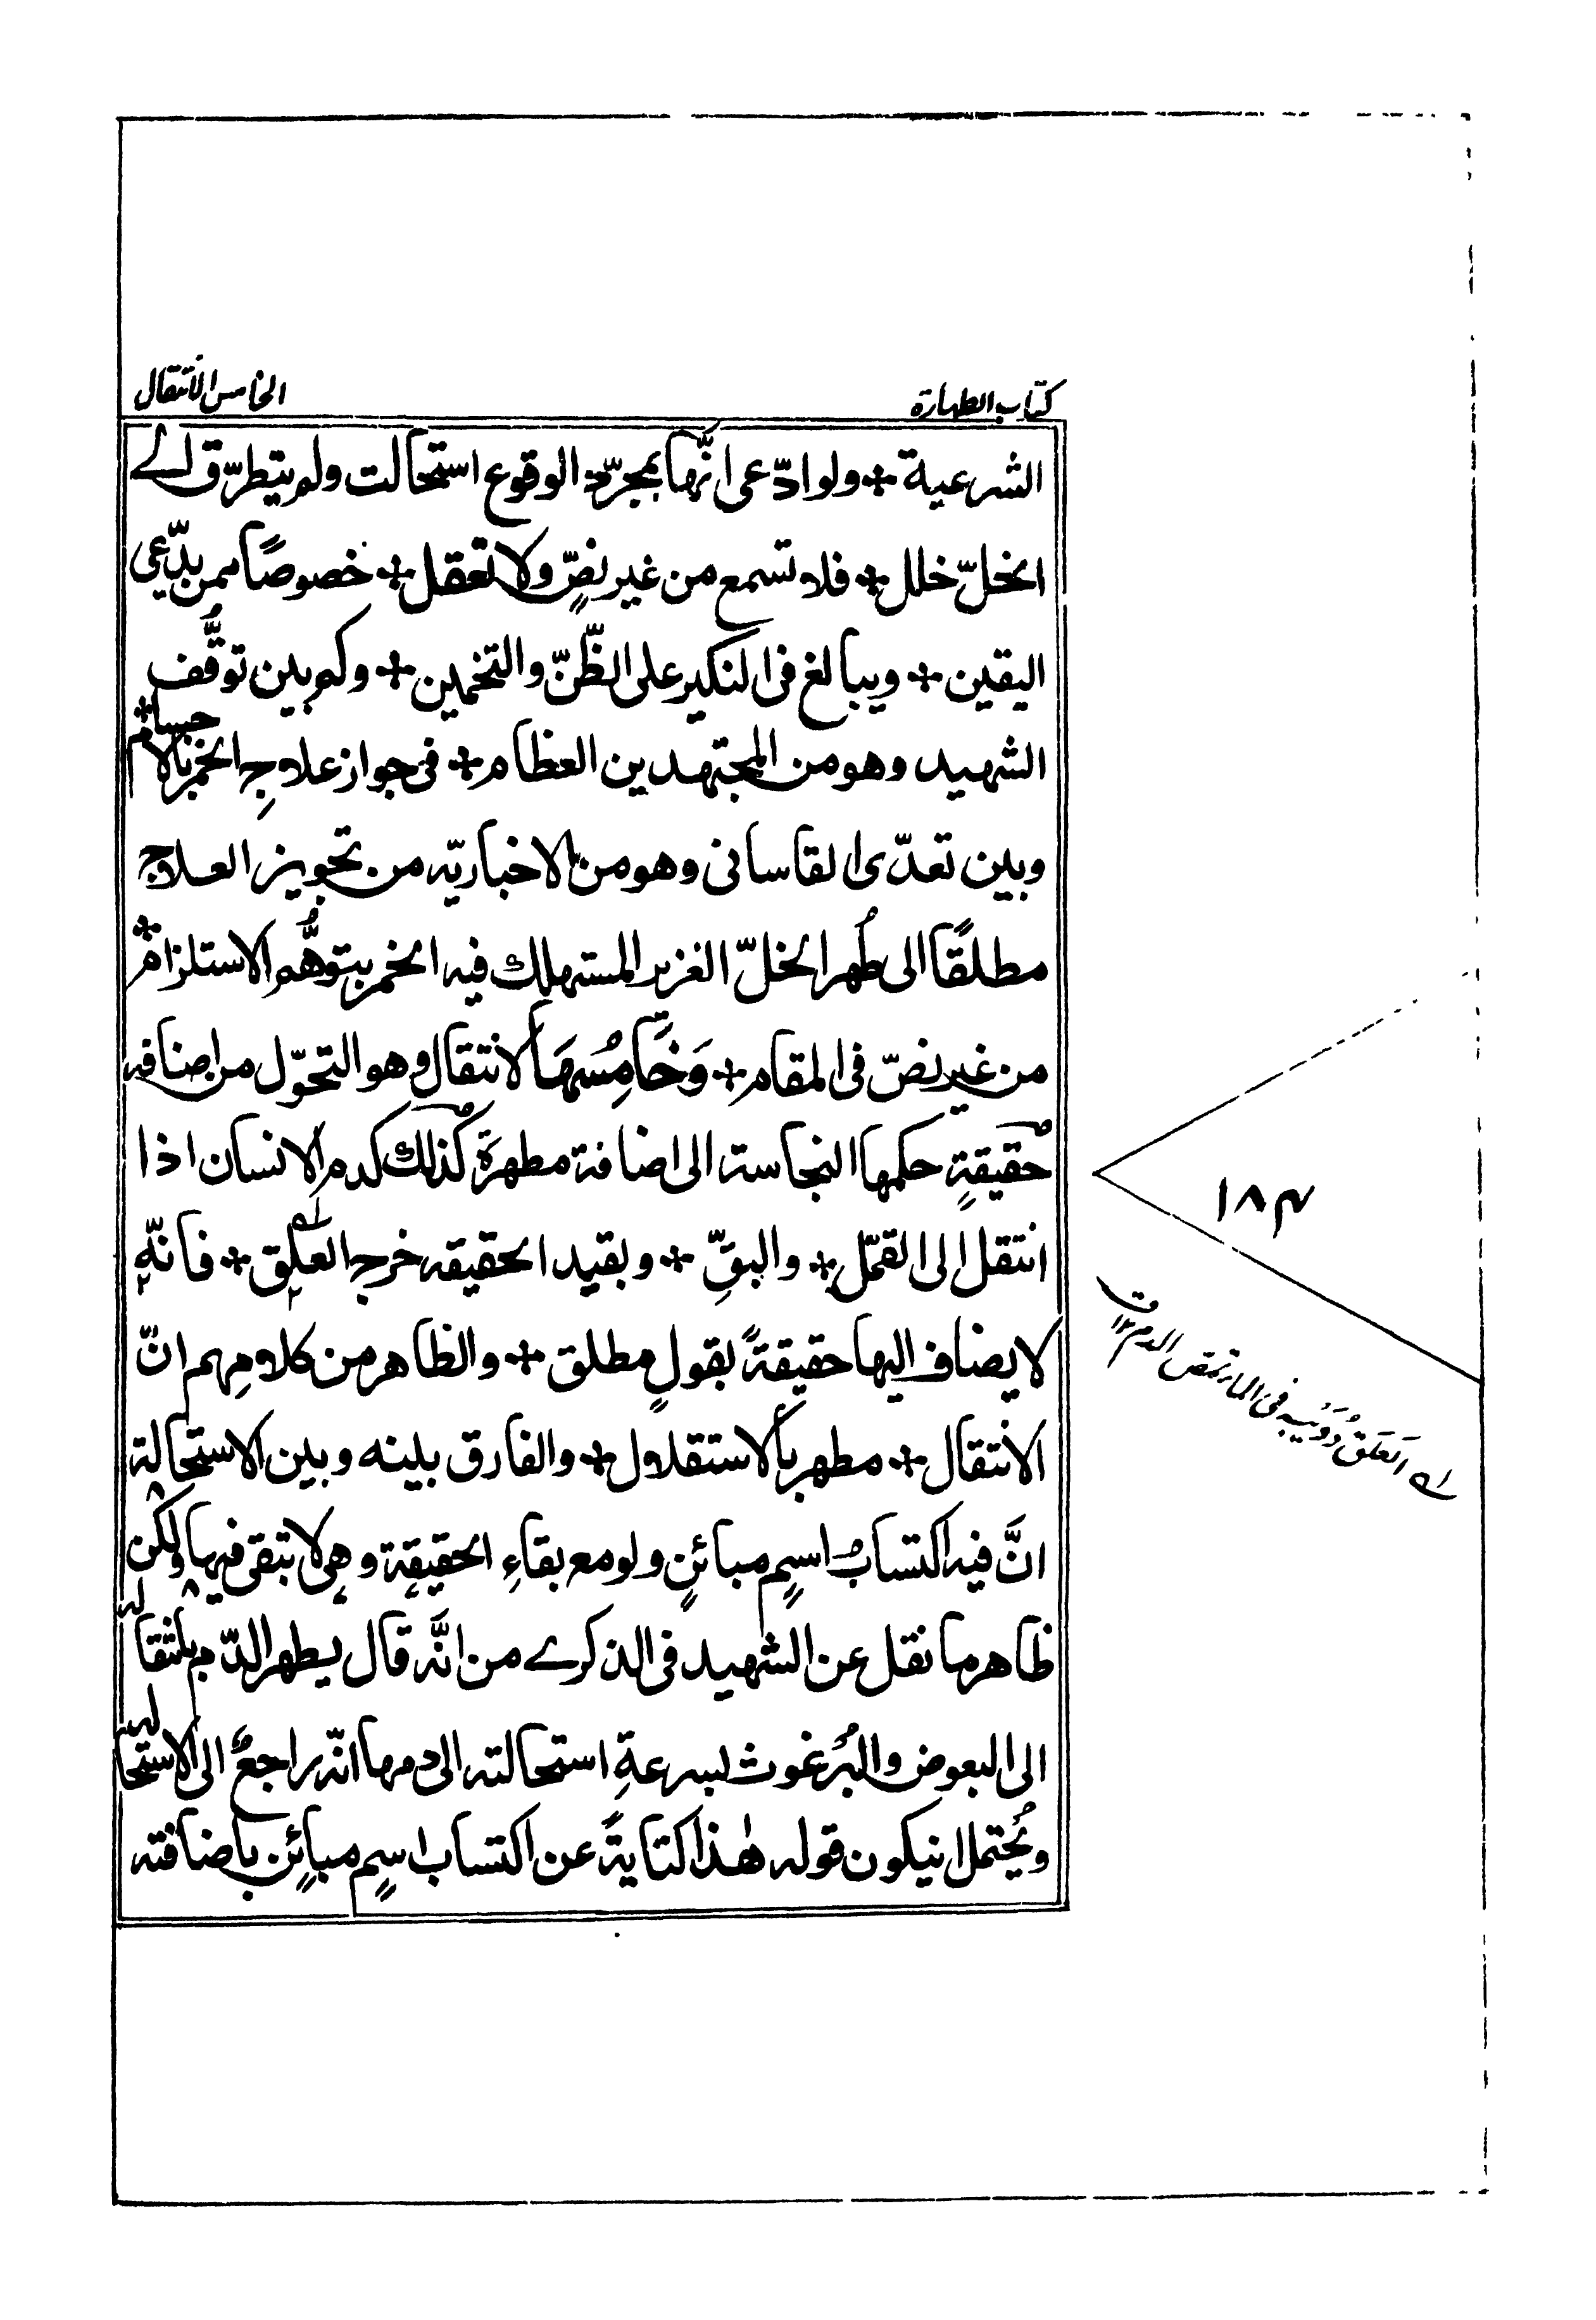 كتاب الطهارة
الخامس الانتقال
الشرعية ÷ ولو ادّعى انّها بمجرّد الوقوع استحالت ولم يتطرّق الے
الخلّ خلل ÷ فلا تسمع من غير نصٍّ ولا تعقل ÷ خصوصًا ممن يدّعى
اليقين ÷ ويبالغ فى النكير على الظّنّ والتخمين ÷ وكم بين توقُّف
الشهيد وهو من المجتهدين العظام ÷ فى جواز علاجِ الخمر بالاجسام ÷
وبين تعدّى القاسانى وهو من الاخباريّه من تجويز العلاج
مطلقًا الى طُهر الخلّ الغزير المستهلك فيه الخمر بتوهُّم الاستلزام ÷
من غير نصّ فى المقام ÷ وَخَامِسُهَا الانتقال وهو التحوّل من اضافه
حقيقةٍ حكمها النجاسة الى اضافة مطهرَة كذلك كدم الانسان اذا
انتقل الى القمّل ÷ والبقِّ ÷ وبقيد الحقيقه خرج العلق ÷ فانّه
لا يضاف اليها حقيقةً بقولٍ مطلق ÷ والظاهر من كلامِهم انّ
الانتقال ÷ مطهر بالاستقلال ÷ والفارق بينه وبين الاستحالة
انَّ فيه اكتسابُ اسمٍ مبائنٍ ولو مع بقاءِ الحقيقة وهى لا تبقى فيها ولكن
ظاهر ما نقل عن الشهيد فى الذكرے من انَّه قال يطهر الدّم بانتقاله
الى البعوض والبُرغوث لسرعةِ استحالته الى دمها انّه راجعٌ الى الاستحاله
ويُحتمل انيكون قوله هٰذا كتايةً عن اكتساب اسمٍ مبائنٍ باضافته
١٨٤
اے العَلَق دُوَيبه فى الماء تمص الدم ١٢ ق